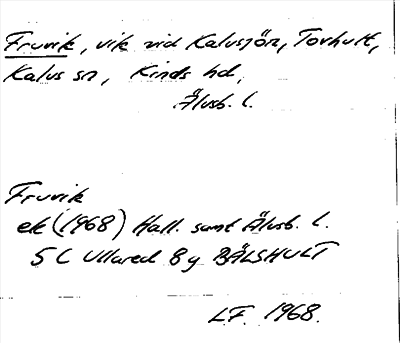 Fruvik, vik vid Kalvsjön, Torhult,
Kalvs sn, Kinds hd,
Älvsb. l.
Fruvik
ek (1968) Hall. samt Älvsb. l.
5 C Ullared 8 g BÄLSHULT
LF. 1968.